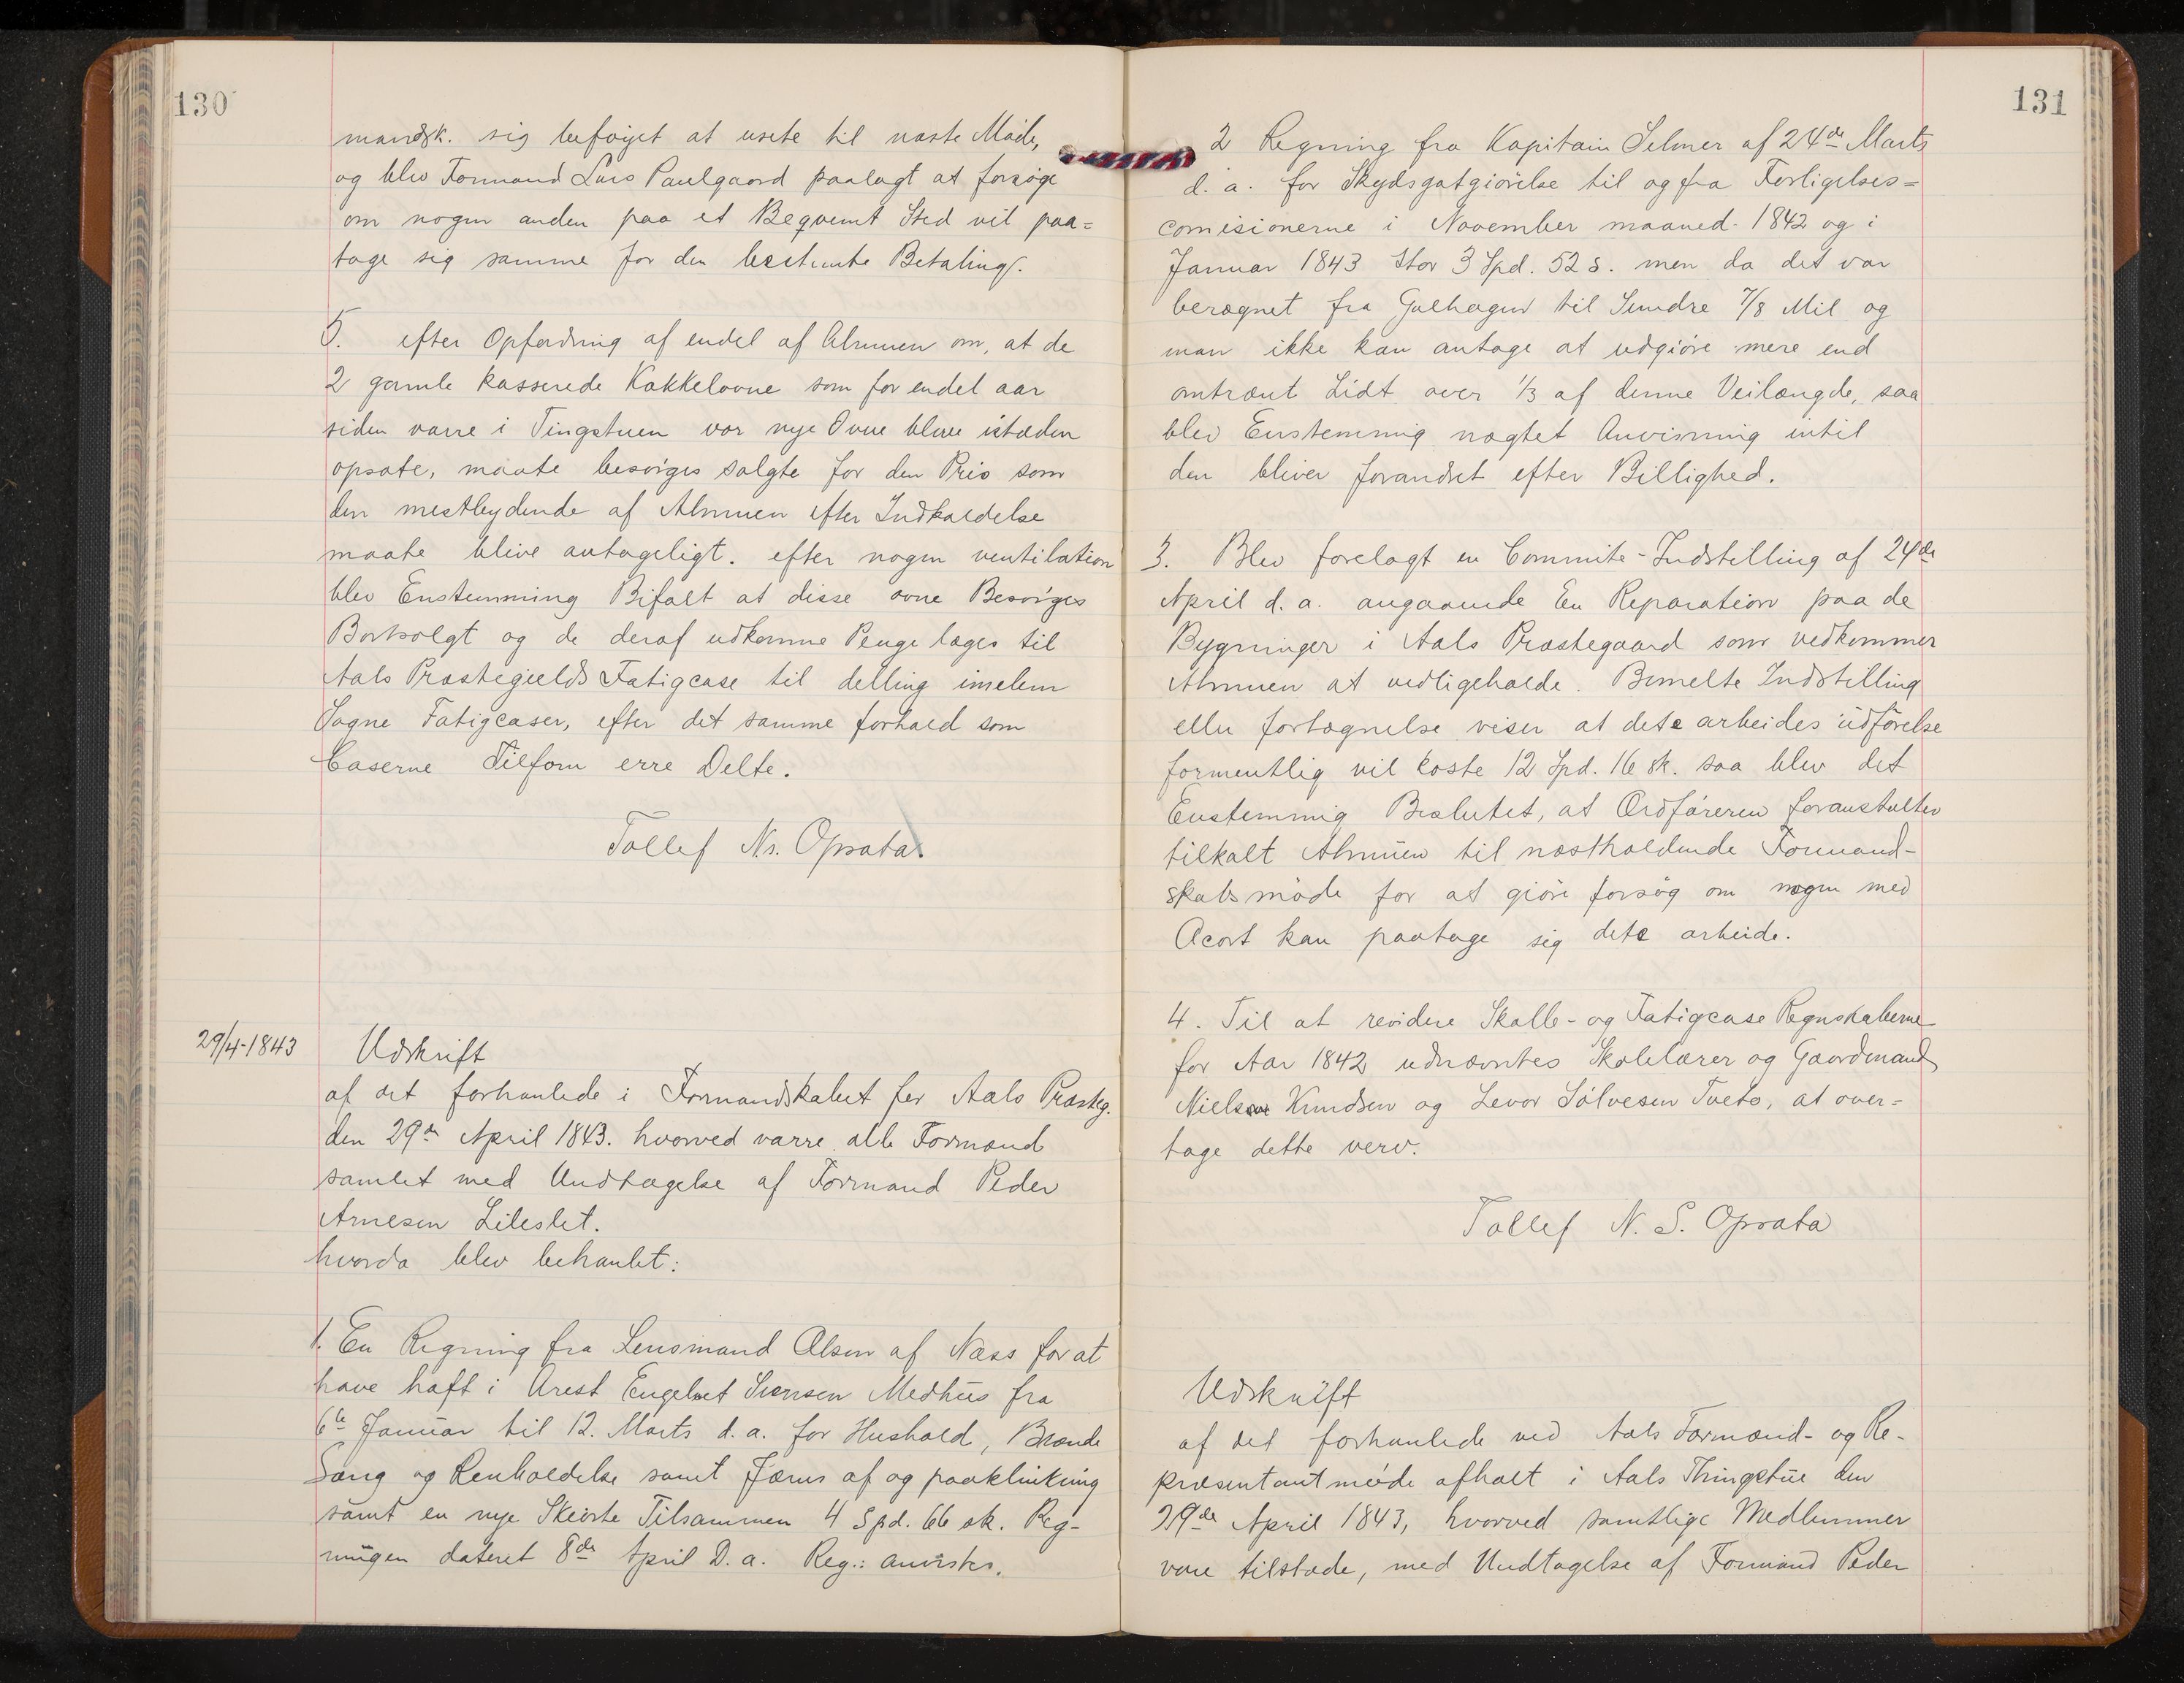 130
mandsk. sig beføiget at usete til næste Møde,
og blev Formand Lars Paulgaard paalagt at forsøge
om nogen anden paa et Beqvemt Sted vil paa=
tage sig samme for den bestemte Betaling.
5. efter Opfordring af endel af Almuen om, at de
2 gamle kasserede Kakkelovne som for endel aar
siden varre i Tingstuen vor nye Ovne bleve isteden
opsate, maate besørges solgte for den Pris som
den mestbydende af Almuen efter Indkaldelse
maate blive antageligt. efter nogen ventilation
blev Enstemming Bifalt at disse ovne Besørges
Bortsolgt og de deraf udkomne Penge lages til
Aals Præstegields Fatigcase til delling imelem
Sogne Fatigcaser, efter det samme forhold som
Caserne Tilforn erre Delte.
Tollef Ns. Opsata.
29/4-1843
Udskrift
af det forhanlede i Formandskabet for Aals Præsteg.
den 29de April 1843. hvorved varre alle Formænd
samlet med Undtagelse af Formand Peder
Arnesen Lileslet.
hvorda blev behanlet:
1. En Regning fra Lensmand Olsen af Næss for at
have haft i Arest Engebret Svensen Medhus fra
6te Januar til 12. Marts d. a. for Hushold, Brænde
Sæng og Renholdelse samt Jærns af og paaklinkning
samt en nye Skiorte Tilsammen 4 Spd. 66 sk. Reg-
ningen dateret 8de April D. a. Reg.: anvistes.
131
2 Regning fra Kapitain Selmer af 24de Marts
d. a. for Skydsgotgiørelse til og fra Forligelses=
comisionerne i November maaned 1842 og i
Januar 1843 stor 3 Spd. 52 s. men da det var
beregnet fra Gulhagen til Sundre 7/8 Mil og
man ikke kan antage at udgiøre mere end
omtrænt Lidt over 1/3 af denne Veilængde, saa
blev Enstemmig nægtet Anvisning intil
den bliver forandret efter Billighed.
3. Blev forelagt en Commite-Indstelling af 24de
April d. a. angaaende En Reparation paa de
Bygninger i Aals Præstegaard som vedkommer
Almuen at vedligeholde. Bemelte Indstilling
eller fortegnelse viser at dete arbeides udførelse
formentlig vil koste 12 Spd. 16 sk. saa blev det
Enstemmig Beslutet, at Ordføreren foranstalter
tilkalt Almuen til næstholdende Formand-
skabsmøde for at giøre forsøg om nogen med
Acort kan paatage sig dete arbeide.
4. Til at revidere Skolle- og Fatigcase Regnskaberne
for Aar 1842 udnævntes Skolelærer og Gaardmand
Niels Knudsen og Levor Sølvesen Tveto, at over=
tage dette verv.
Tollef N. S. Opsata
Udskrift
af det forhanlede ved Aals Formænd- og Re-
præsentantmøde afholt i Aals Thingstue den
29de April 1843, hvorved samtlige Medlemmer
vare tilstæde, med Undtagelse af Formand Peder